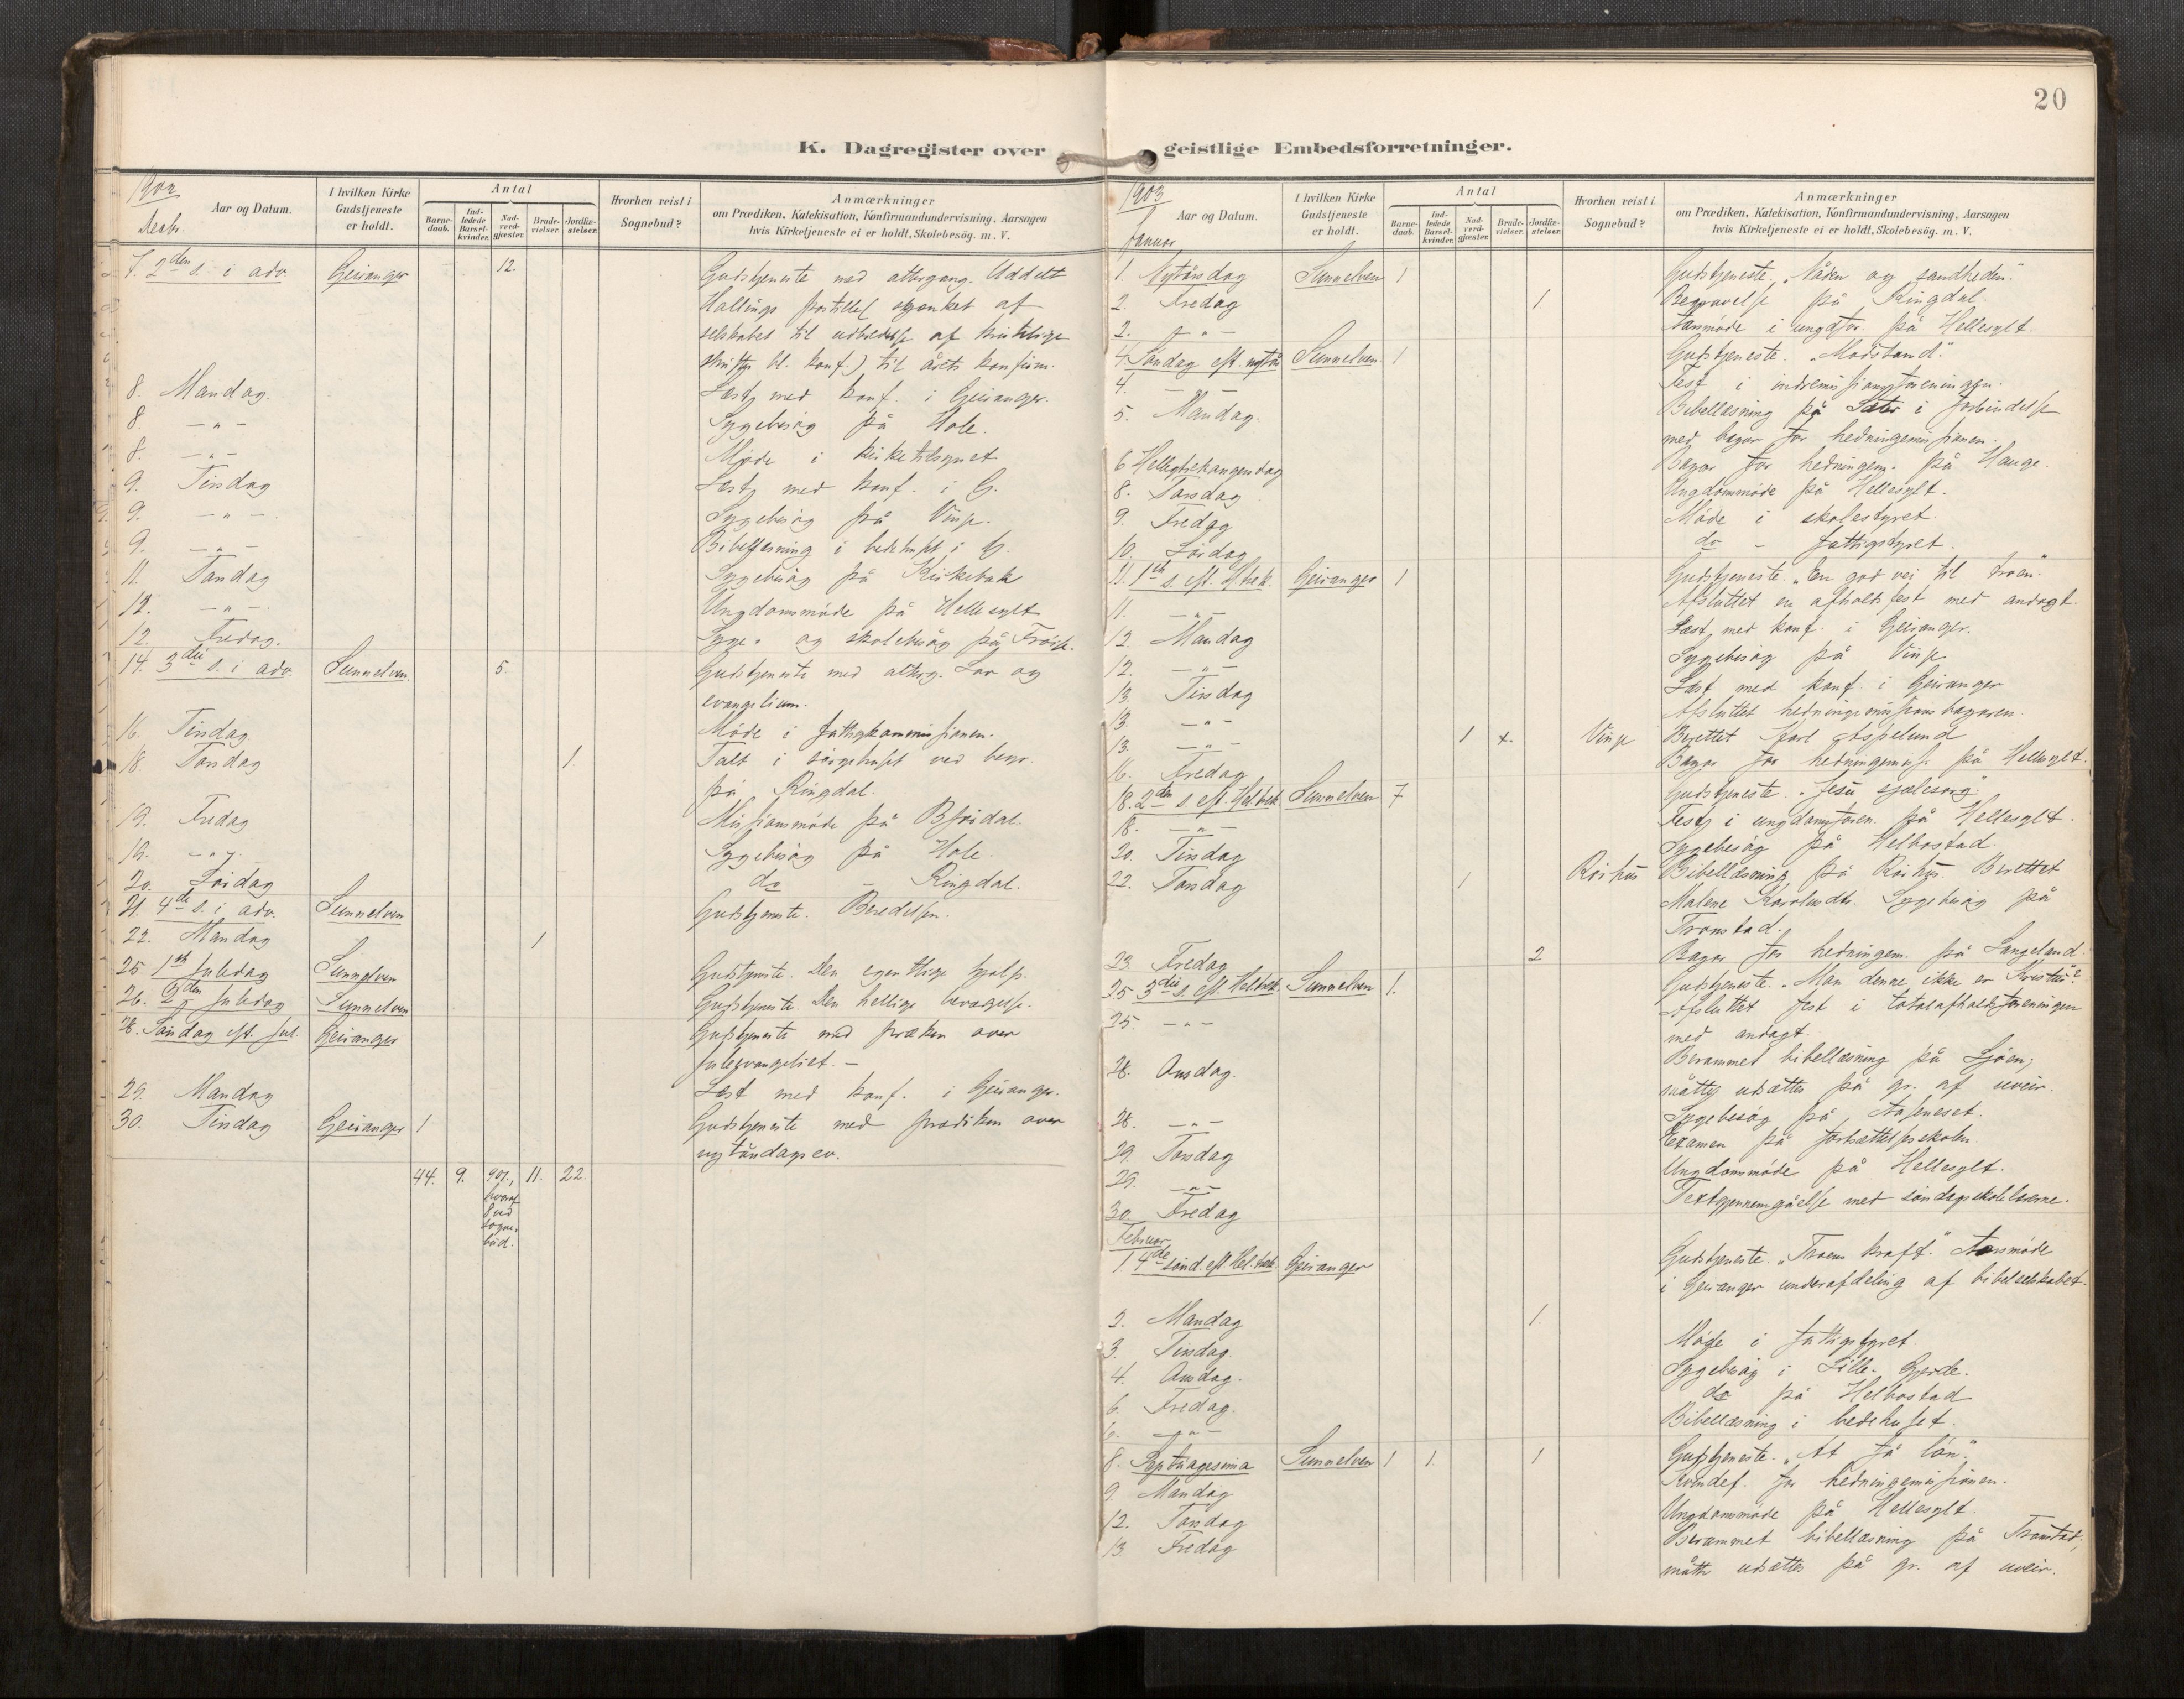 20
K. Dagregister over geistlige Embedsforretninger.
1902
Decbr.
Aar og Datum.
I hvilken Kirke Gudstjeneste er holdt.
Antal
Barne-daab.
Ind-ledede Barsel-kvinder.
Nad-verd-gjæster.
Brude-vielser.
Jordfæ-stelser.
Hvorhen reist i Sognebud?
Anmærkninger
om Prædiken, Katekisation, Konfirmandundervisning, Aarsagen
hvis Kirketjeneste ei er holdt, Skolebesøg. m. V.
7. 2den s. i adv. Geiranger 12. Gudstjeneste med altergang. Uddelt
Hallings postille skjænket af
selskabet til udbredelse af kristelige
skrifter bl. konf.) til årets konfirm.
8. Mandag. Læst med konf. i Geiranger.
8. — " — Sygebesøg på Hole.
8. — " — Møde i kirketilsynet
9. Tirsdag Læst med konf. i G.
9. — " — Sygebesøg på Vinje.
9. — " — Bibellæsning i bedehuset i G.
11. Torsdag Sygebesøg på Kirkebak
12. — " — Ungdomsmøde på Hellesylt
12. Fredag. Syge- og skolebesøg på Frøise.
14. 3die s. i adv. Sunnelven. 5. Gudstjeneste med alterg. Lov og
evangelium.
16. Tirsdag. Møde i fattigkommissionen.
18. Torsdag 1. Talt i sørgehuset ved begr.
på Ringdal.
19. Fredag Missionsmøde på Bjørdal.
19. — " — Sygebesøg på Hole.
20. Lørdag do — Ringdal.
21. 4de s. i adv. Sunnelven Gudstjeneste. Beredelsen.
22. Mandag 1
25. 1ste juledag Sunnelven Gudstjeneste. Den egentlige hjælp.
26. 2den juledag Sunnelven Gudstjeneste. Den hellige bevægelse.
28. Søndag eft. jul Geiranger Gudstjeneste med præken over
juleevangeliet. —
29. Mandag Læst med konf. i Geiranger.
30. Tirsdag Geiranger 1 Gudstjeneste med prædiken over
nytårsdagsev.
44. 9. 901, 11. 22.
hvoraf
8 ved
sogne-
bud.
1903
Januar
Aar og Datum.
I hvilken Kirke Gudstjeneste er holdt.
Antal
Barne-daab.
Ind-ledede Barsel-kvinder.
Nad-verd-gjæster.
Brude-vielser.
Jordfæ-stelser.
Hvorhen reist i Sognebud?
Anmærkninger
om Prædiken, Katekisation, Konfirmandundervisning, Aarsagen
hvis Kirketjeneste ei er holdt, Skolebesøg. m. V.
1. Nytårsdag Sunnelven 1 Gudstjeneste. "Nåden og sandheden."
2. Fredag 1 Begravelse på Ringdal.
2. — " — Årsmøde i ungdfor. på Hellesylt.
4 Søndag eft. nytår Sunnelven 1 Gudstjeneste. "Modstand."
4. — " — Fest i indremissionsforeningen.
5. Mandag. Bibellæsning på Sæter i forbindelse
med bazar for hedningemissionen.
6 Helligtrekongersdag Bazar for hedningem. på Hauge.
8. Torsdag Ungdomsmøde på Hellesylt.
9. Fredag Møde i skolestyret.
10. Lørdag do — fattigstyret.
11. 1ste s. eft. H.trek. Geiranger 1 Gudstjeneste. "En god vei til troen."
11. — " — Afsluttet en afholdsfest med andagt.
12. Mandag Læst med konf. i Geiranger.
12. — " — Sygebesøg på Vinje
13. Tirsdag Læst med konf. i Geiranger
13. — " — Afsluttet hedningemissionsbazaren.
13. — " — 1 x. Vinje Berettet Karl Aspelund
16. Fredag Bazar for hedningemiss. på Hellesylt.
18. 2den s. eft. Hel.trek. Sunnelven 7 Gudstjeneste. "Jesu sjælesorg."
18. — " — Fest i ungdomsforen. på Hellesylt.
20. Tirsdag Sygebesøg på Helbostad.
22. Torsdag 1 Røihus Bibellæsning på Røihus. Berettet
Malene Karolusdtr. Sygebesøg på
Tronstad.
23. Fredag 2 Bazar for hedningem. på Langeland.
25 3die s. eft. Hel.trek. Sunnelven 1. Gudstjeneste. "Mon denne ikke er Kristus"?
25. — " — Afsluttet fest i totalafholdsforeningen
med andagt.
28. Onsdag. Berammet bibellæsning på Ljøen;
måtte udsættes på gr. af uveir.
28. — " — Sygebesøg på Stafsneset.
29. Torsdag Examen på fortsættelsesskolen.
29. — " — Ungdomsmøde på Hellesylt.
30. Fredag Textgjennemgåelse med søndagsskolelærerne.
Februar
1 4de sønd. eft. Hel.trek. Geiranger Gudstjeneste. "Troens kraft." Årsmøde
i Geiranger underafdeling af bibelselskabet.
2. Mandag 1.
3. Tirsdag. Møde i fattigstyret.
4. Onsdag. Sygebesøg i Lille-Gjerde.
6. Fredag. do på Helbostad
6. — " — Bibellæsning i bedehuset.
8. Septuagesima Sunnelven 1 1. 1 Gudstjeneste. "At få løn."
9. Mandag Kvindef. for hedningemissionen.
12. Torsdag Ungdomsmøde på Hellesylt.
13. Fredag Berammet bibellæsning på Tronstad;
måtte udsættes på gr. af uveir.